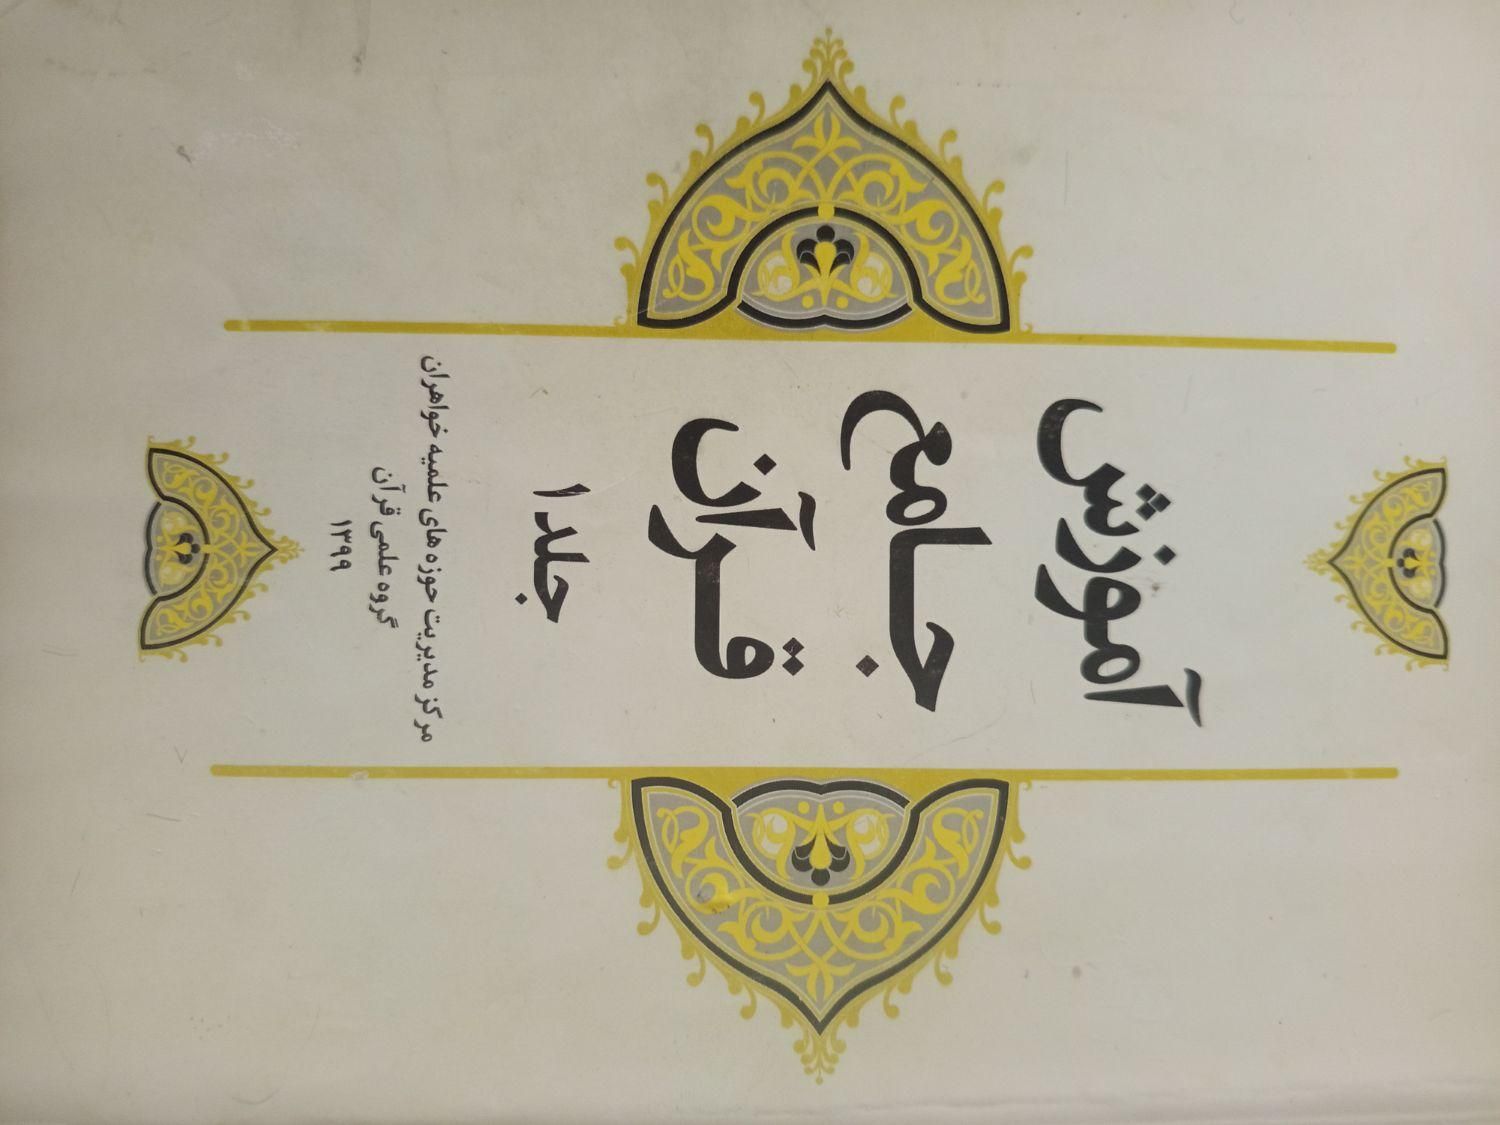 آموزش
جامع
قرآن
جلد ۱
مرکز مدیریت حوزه های علمیه خواهران
گروه علمی قرآن
۱۳۹۹